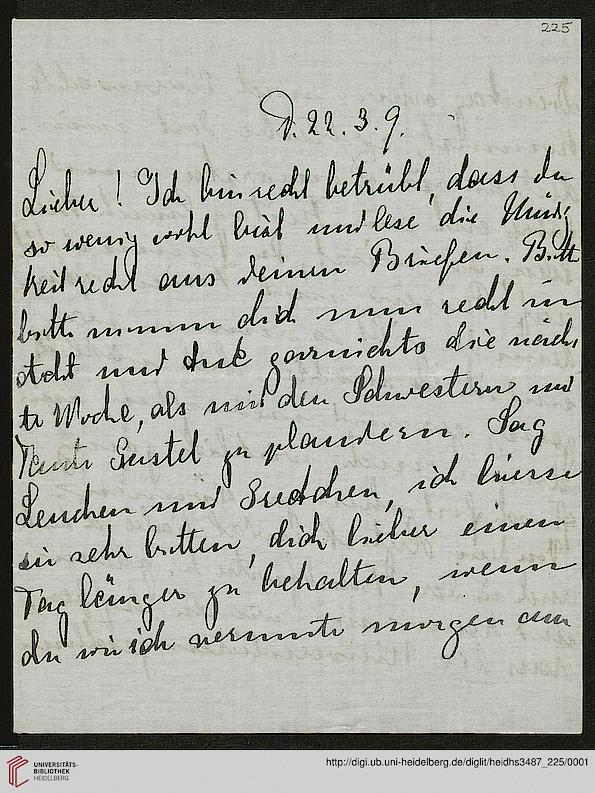 225
D. 22. 3. 9.
Lieber! Ich bin recht betrübt, dass du
so wenig wohl bist und lese die Müdig
keit recht aus deinen Briefen. Bitte
bitte nimm dich nun recht in
acht und tue garnichts die näch
te Woche, als mit den Schwestern und
Tante Gustel zu plaudern. Sag
Lenchen und Suschen, ich liesse
sie sehr bitten, dich lieber einen
Tag länger zu behalten, wenn
du wie ich vermute morgen am
UNIVERSITÄTS-
BIBLIOTHEK
HEIDELBERG
http://digi.ub.uni-heidelberg.de/diglit/heidhs3487_225/0001